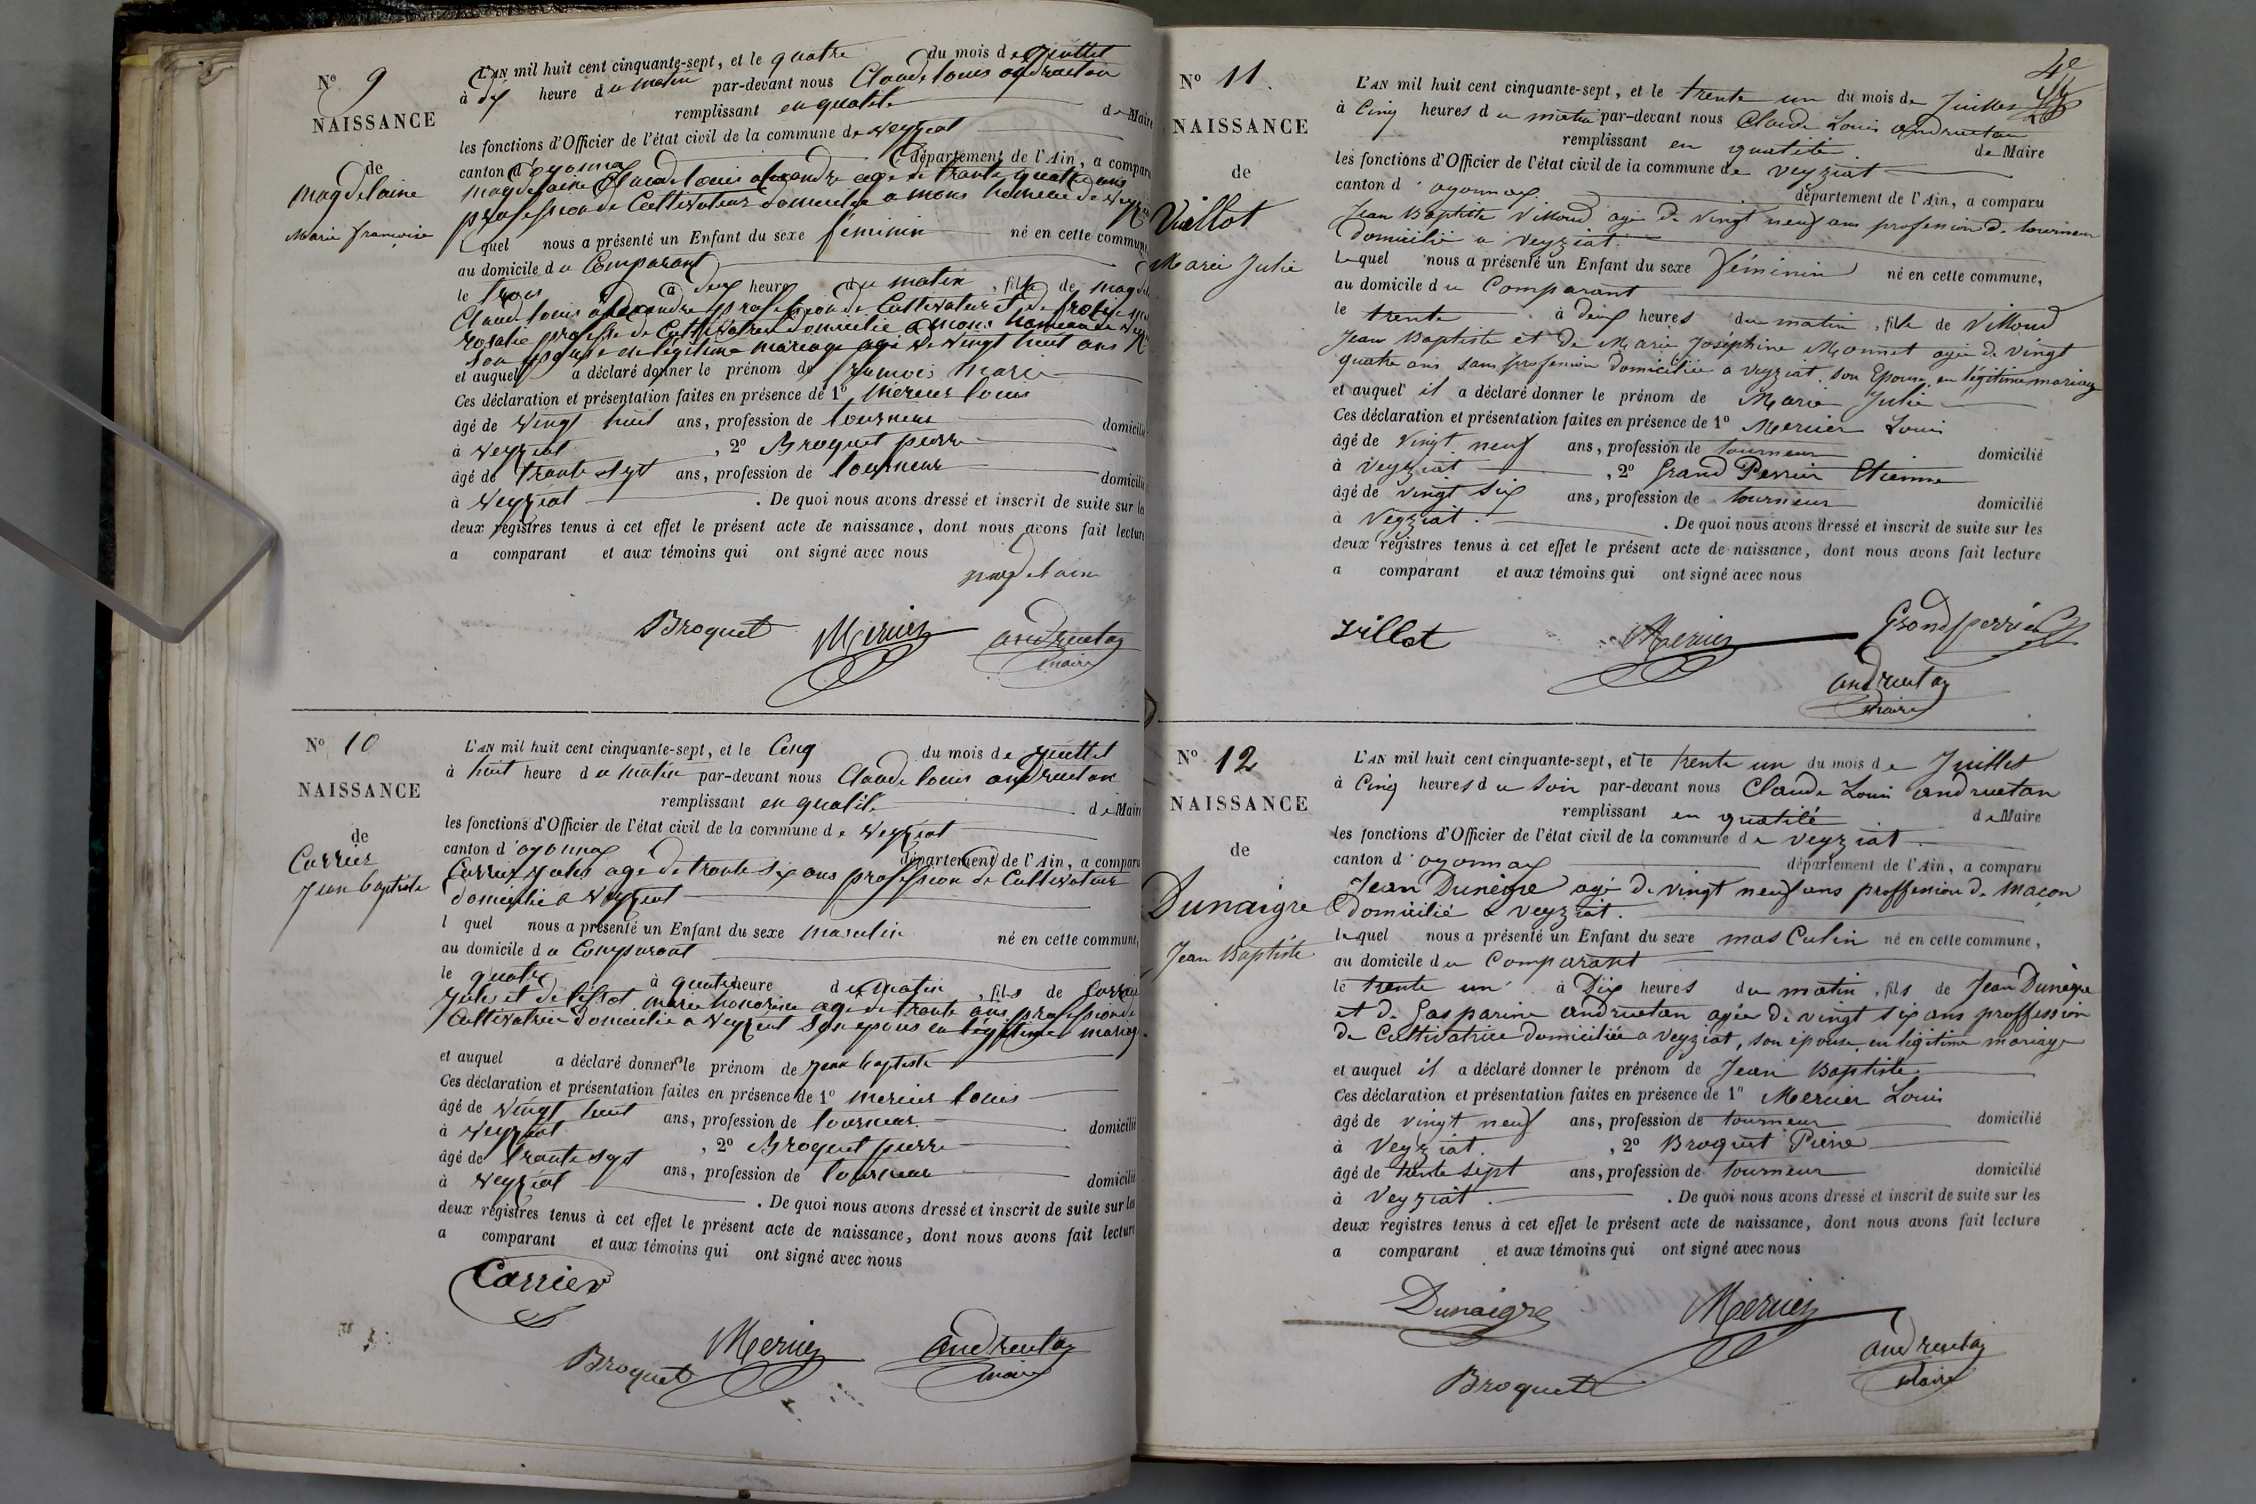 N° 9
NAISSANCE
de
Magdelaine
Marie françoise
L'AN mil huit cent cinquante-sept, et le quatre du mois de juillet
à dix heure du matin par-devant nous Claude louis andruetan
remplissant en qualité de Maire
les fonctions d'Officier de l'état civil de la commune de Veyziat
canton d'oyonnax département de l'Ain, a comparu
magdelaine Claude louis alexandre age de trante quatre ans
profession de Cultivateur domicilie a mons hameau de
l quel nous a présenté un Enfant du sexe féminin né en cette commune,
au domicile du Comparant
le trois à deux heure du matin, fille de
Claude louis alexandre profession de Cultivateur et de
rosalie de Cultivatrice domicilie a mons hameau de
son epouse en légitime mariage agé de vingt huit ans
et auquel a déclaré donner le prénom de marie
Ces déclaration et présentation faites en présence de 1° mercier louis
âgé de vingt huit ans, profession de tourneur domicilié
à Veyziat, 2° Broquet pierre
âgé de trante sept ans, profession de tourneur domicilié
à Veyziat. De quoi nous avons dressé et inscrit de suite sur les
deux registres tenus à cet effet le présent acte de naissance, dont nous avons fait lecture
a comparant et aux témoins qui ont signé avec nous
magdelaine
Broquet Mercier andruetan
maire
N° 10
NAISSANCE
de
Carrier
Jean baptiste
L'AN mil huit cent cinquante-sept, et le Cinq du mois de juillet
à huit heure du matin par-devant nous Claude louis andruetan
remplissant en qualité de Maire
les fonctions d'Officier de l'état civil de la commune de Veyziat
canton d'oyonnax département de l'Ain, a comparu
Carrier jules age de trante six ans profession de Cultivateur
domicilie a Veyziat
l quel nous a présenté un Enfant du sexe masculin né en cette commune,
au domicile du Comparant
le quatre à quatre heure du matin, fils de Carrier
jules et de marie honorine agé de trante ans profession de
Cultivatrice domicilie a Veyziat son epouse en légitime mariage
et auquel a déclaré donner le prénom de jean baptiste
Ces déclaration et présentation faites en présence de 1° mercier louis
âgé de vingt huit ans, profession de tourneur domicilié
à Veyziat, 2° Broquet pierre
âgé de trante sept ans, profession de tourneur domicilié
à Veyziat. De quoi nous avons dressé et inscrit de suite sur les
deux registres tenus à cet effet le présent acte de naissance, dont nous avons fait lecture
a comparant et aux témoins qui ont signé avec nous
Carrier
Broquet Mercier andruetan
maire
N° 11
NAISSANCE
de
Vuillot
Marie Julie
L'AN mil huit cent cinquante-sept, et le trente un du mois de Juillet
à Cinq heures du matin par-devant nous Claude Louis andruetan
remplissant en qualité de Maire
les fonctions d'Officier de l'état civil de la commune de Veyziat
canton d'oyonnax département de l'Ain, a comparu
Jean Baptiste Villoud agé de vingt neuf ans profession de tourneur
domicilié a Veyziat.
lequel nous a présenté un Enfant du sexe féminin né en cette commune,
au domicile du Comparant
le trente à deux heures du matin, fille de Villoud
Jean Baptiste et de Marie Joséphine Monnet agée de vingt
quatre ans sans profession domiciliée a veyziat son Epouse en légitime mariage
et auquel il a déclaré donner le prénom de Marie Julie
Ces déclaration et présentation faites en présence de 1° Mercier Louis
âgé de vingt neuf ans, profession de tourneur domicilié
à Veyziat, 2° Grand Perrier Etienne
âgé de vingt six ans, profession de tourneur domicilié
à Veyziat. De quoi nous avons dressé et inscrit de suite sur les
deux registres tenus à cet effet le présent acte de naissance, dont nous avons fait lecture
a comparant et aux témoins qui ont signé avec nous
villot Mercier Grand perrier
andruetan
maire
N° 12
NAISSANCE
de
Dunaigre
Jean Baptiste
L'AN mil huit cent cinquante-sept, et le trente un du mois de Juillet
à Cinq heures du Soir par-devant nous Claude Louis andruetan
remplissant en qualité de Maire
les fonctions d'Officier de l'état civil de la commune de Veyziat
canton d'oyonnax département de l'Ain, a comparu
Jean Dunègre agé de vingt neuf ans proffession de maçon
Domicilié a veyziat.
lequel nous a présenté un Enfant du sexe masculin né en cette commune,
au domicile du Comparant
le trente un à Dix heures du matin, fils de Jean Dunègre
et de Gasparine andruetan agée de vingt six ans proffession
de Cultivatrice domiciliée a veyziat, son épouse en légitime mariage
et auquel il a déclaré donner le prénom de Jean Baptiste
Ces déclaration et présentation faites en présence de 1° Mercier Louis
âgé de vingt neuf ans, profession de tourneur domicilié
à Veyziat, 2° Broquet Pierre
âgé de trente sept ans, profession de tourneur domicilié
à Veyziat. De quoi nous avons dressé et inscrit de suite sur les
deux registres tenus à cet effet le présent acte de naissance, dont nous avons fait lecture
a comparant et aux témoins qui ont signé avec nous
Dunaigre Mercier
andruetan
Maire
Broquet